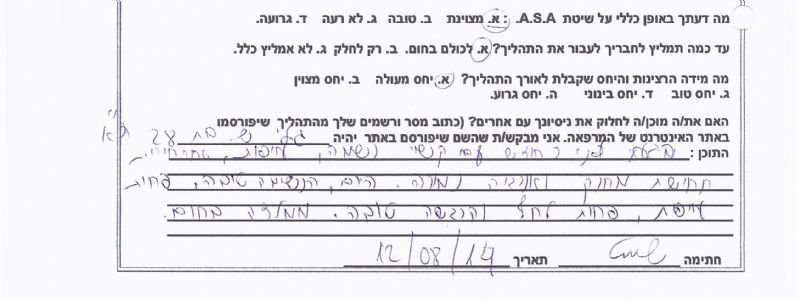 מה דעתך באופן כללי על שיטת A.S.A. : א. מצוינת ב. טובה ג. לא רעה ד. גרועה.
עד כמה תמליץ לחבריך לעבור את התהליך? א. לכולם בחום. ב. רק לחלק ג. לא אמליץ כלל.
מה מידה הרצינות והיחס שקבלת לאורך התהליך? א. יחס מעולה ב. יחס מצוין
ג. יחס טוב ד. יחס בינוני ה. יחס גרוע.
האם את/ה מוכן/ה לחלוק את ניסיונך עם אחרים? (כתוב מסר ורשמים שלך מהתהליך שיפורסמו
באתר האינטרנט של המרפאה. אני מבקש/ת שהשם שיפורסם באתר יהיה
התוכן : לפני כחודש עם קשיי נשימה, עייפות,
תחושת מחנק ואנרגיה נמוכה. היום, הנשימה טובה, פחות
עייפות, פחות לחץ והרגשה טובה. ממליצה בחום.
חתימה תאריך 12/08/14